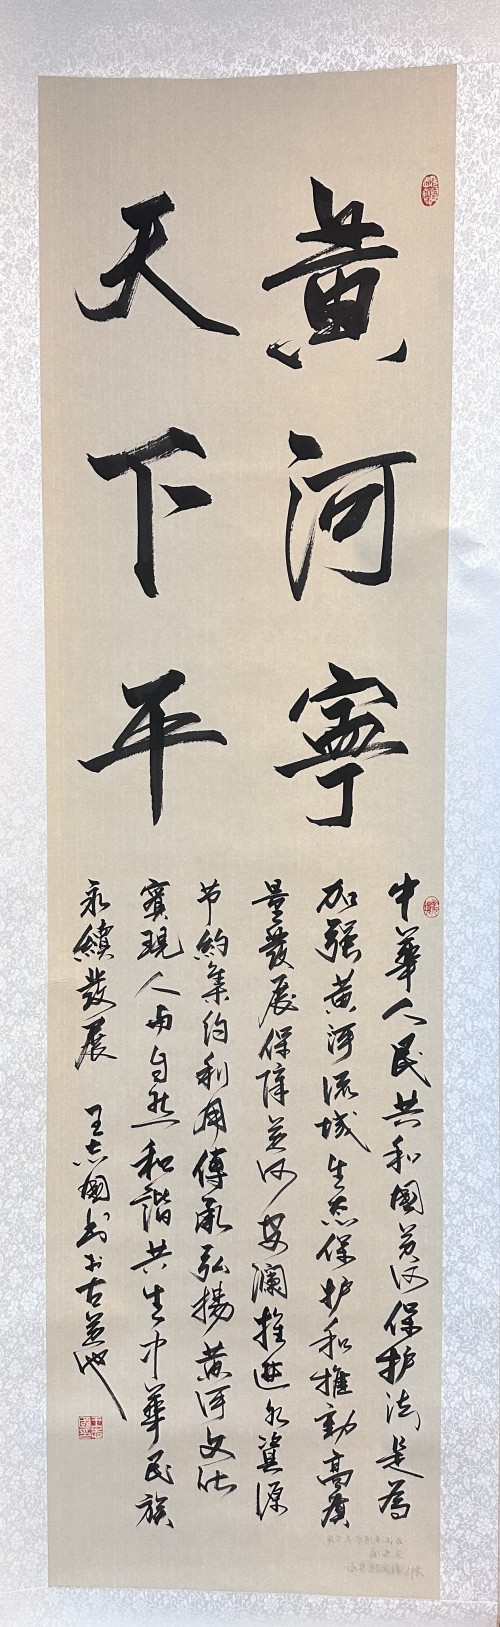 黄河寧
天下平
中華人民共和國黄河保护法是為
加强黄河流域生态保护和推動高质
量發展保障黄河安澜推進水資源
节约集约利用傳承弘揚黄河文化
實現人与自然和諧共生中華民族
永續發展
王志國书於古